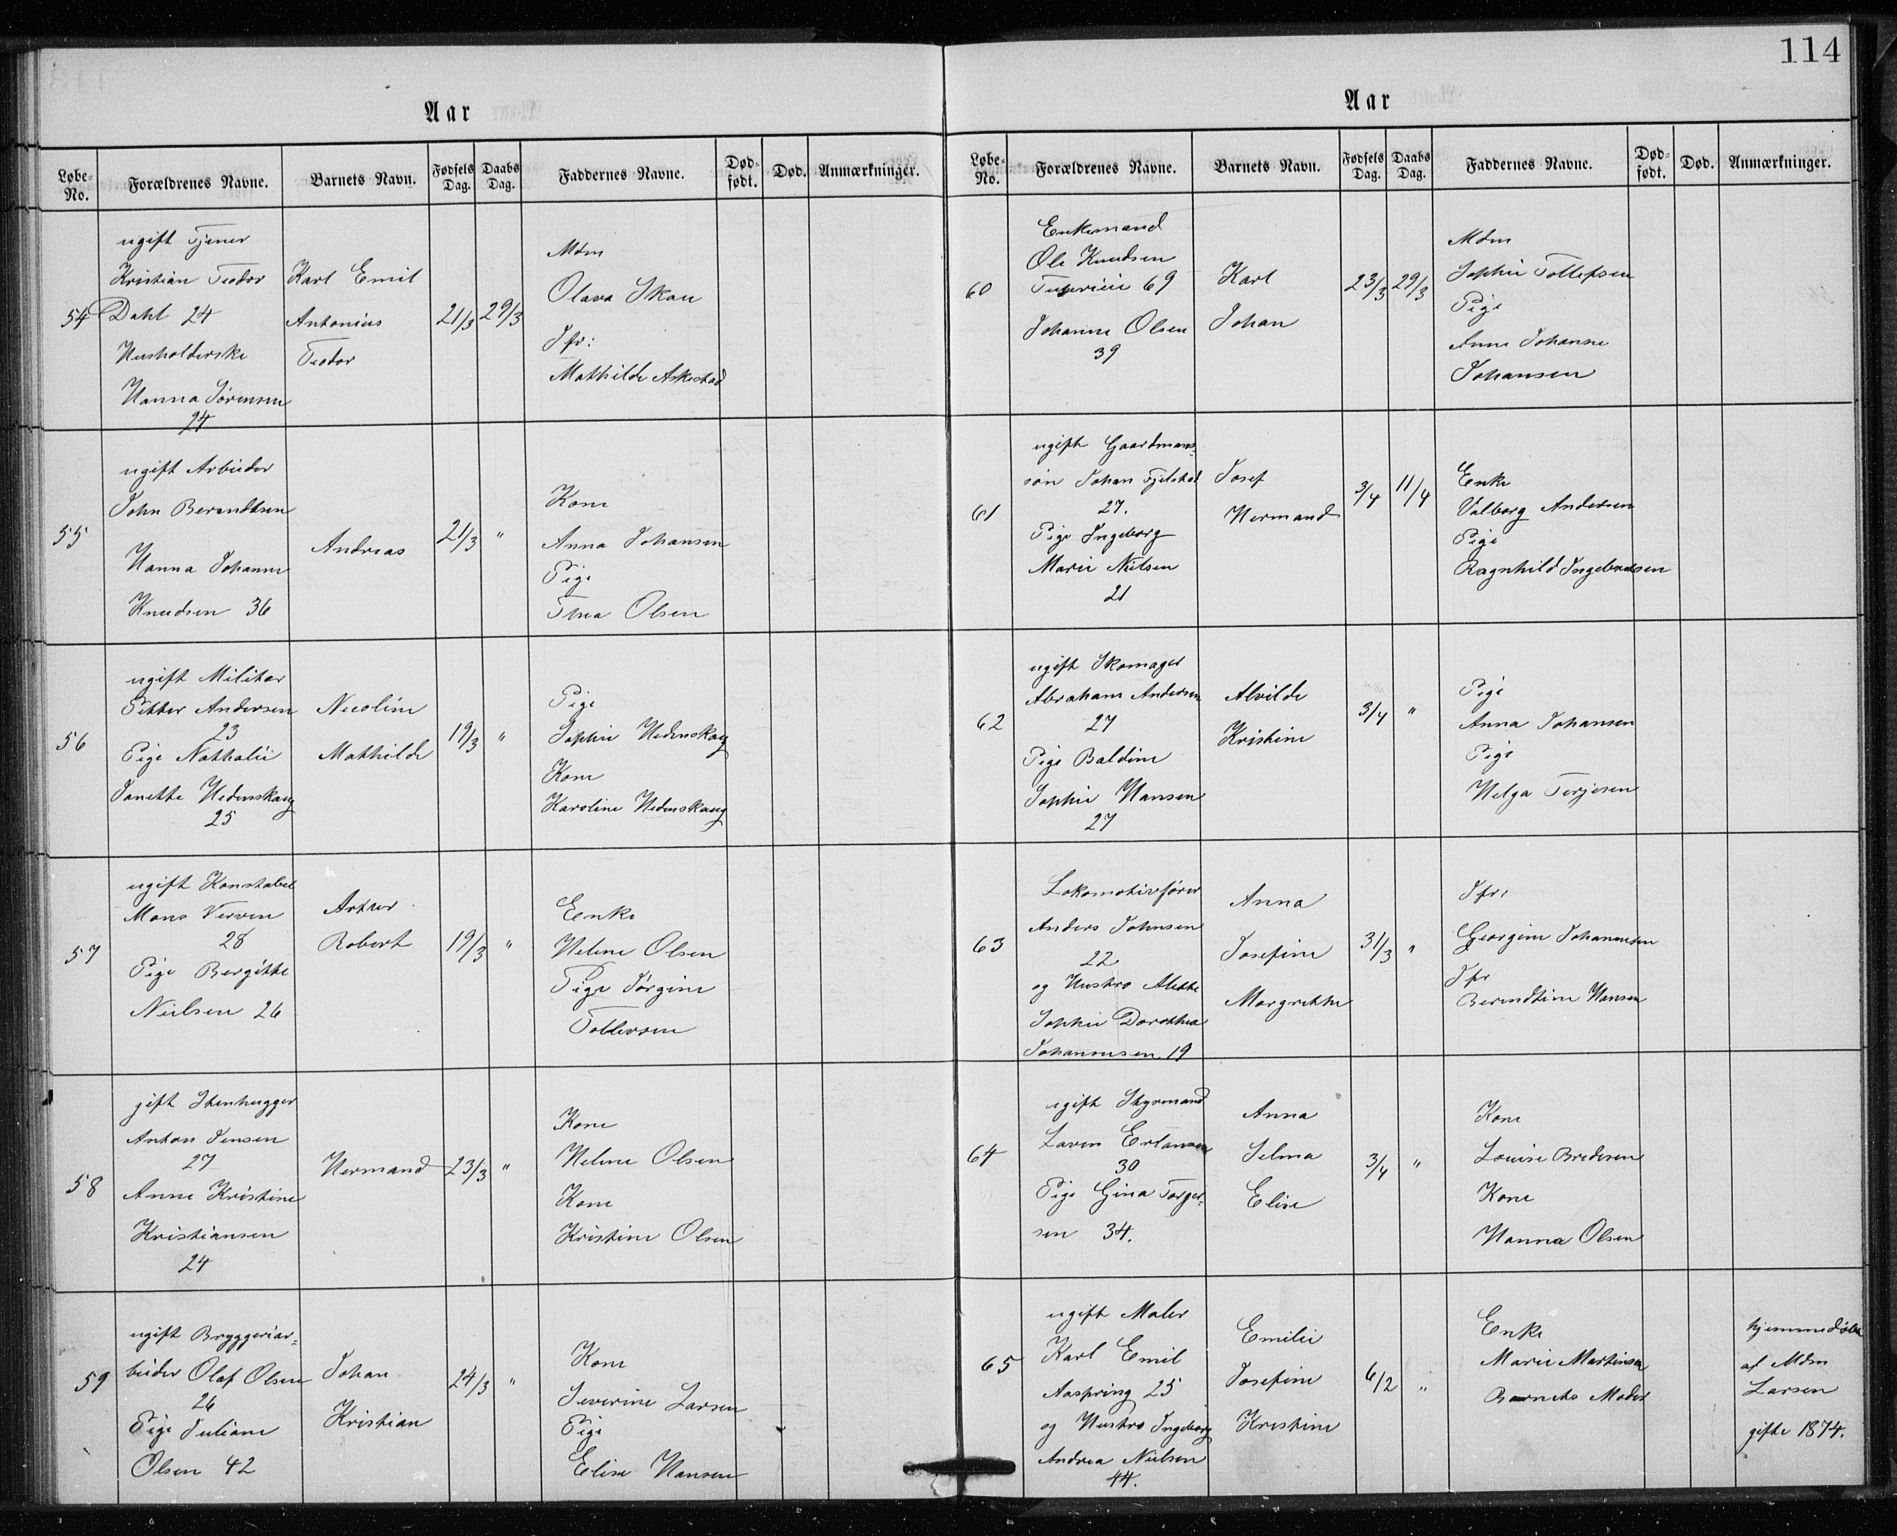 114
Aar
Løbe-No. Forældrenes Navne. Barnets Navn. Fødsels Dag. Daabs Dag. Faddernes Navne. Død-født. Død. Anmærkninger.
54
ugift Tjener
Kristian Teodor
Dahl 24
Husholderske
Hanna Sørensen
24
Karl Emil
Antonius
Teodor
21/3
29/3
Mdm
Olava Skau
Jfr:
Mathilde Askestad
55
ugift Arbeider
John Berendtsen
Hanna Johanne
Knudsen 36
Andreas
21/3
"
Kone
Anna Johansen
Pige
Thea Olsen
56
ugift Militær
Petter Andersen
23
Pige Nathalie
Janette Hedenskaug
25
Nicoline
Mathilde
19/3
"
Pige
Sophie Hedenskaug
Kone
Karoline Hedenskaug
57
ugift Konstabel
Mons Verven
28
Pige Bergitte
Nielsen 26
Artur
Robert
19/3
"
Enke
Helene Olsen
Pige Jørgine
Tollevsen
58
gift Stenhugger
Anton Jensen
27
Anne Kristine
Kristiansen
24
Hermand
23/3
"
Kone
Helene Olsen
Kone
Kristine Olsen
59
ugift Bryggeriar=
beider Olaf Olsen
26
Pige Juliane
Olsen 42
Johan
Kristian
24/3
"
Kone
Severine Larsen
Pige
Elise Hansen
Aar
Løbe-No. Forældrenes Navne. Barnets Navn. Fødsels Dag. Daabs Dag. Faddernes Navne. Død-født. Død. Anmærkninger.
60
Enkemand
Ole Knudsen
69
Johanne Olsen
39
Karl
Johan
23/3
29/3
Mdm
Sophie Tollefsen
Pige
Anne Johanne
Johansen
61
ugift Gaardmans=
søn Johan Fjelstad
27.
Pige Ingeborg
Marie Nielsen
21
Josef
Hermand
3/4
11/4
Enke
Valborg Andersen
Pige
Ragnhild Ingebretsen
62
ugift Skomager
Abraham Andersen
27
Pige Baldine
Sophie Hansen
27
Alvilde
Kristine
3/4
"
Pige
Anna Johansen
Pige
Helga Terjesen
63
Lokomotivfører
Anders Johnsen
22
og Hustro Alette
Sophie Dorothea
Johannesen 19
Anna
Josefine
Margrethe
31/3
"
Jfr:
Georgine Johannesen
Jfr
Berendtine Hansen
64
ugift Styrmand
Laven Erlansen
30
Pige Gina Torger=
sen 34.
Anna
Selma
Elise
3/4
"
Kone
Louise Bredesen
Kone
Hanna Olsen
65
ugift Maler
Karl Emil
Aaspring 25
og Hustro Ingeborg
Andrea Nielsen
44.
Emilie
Josefine
Kristine
6/2
"
Enke
Marie Martinsen
Barnets Moder
hjemmedøbt
af Mdm
Larsen
gifte 1874.